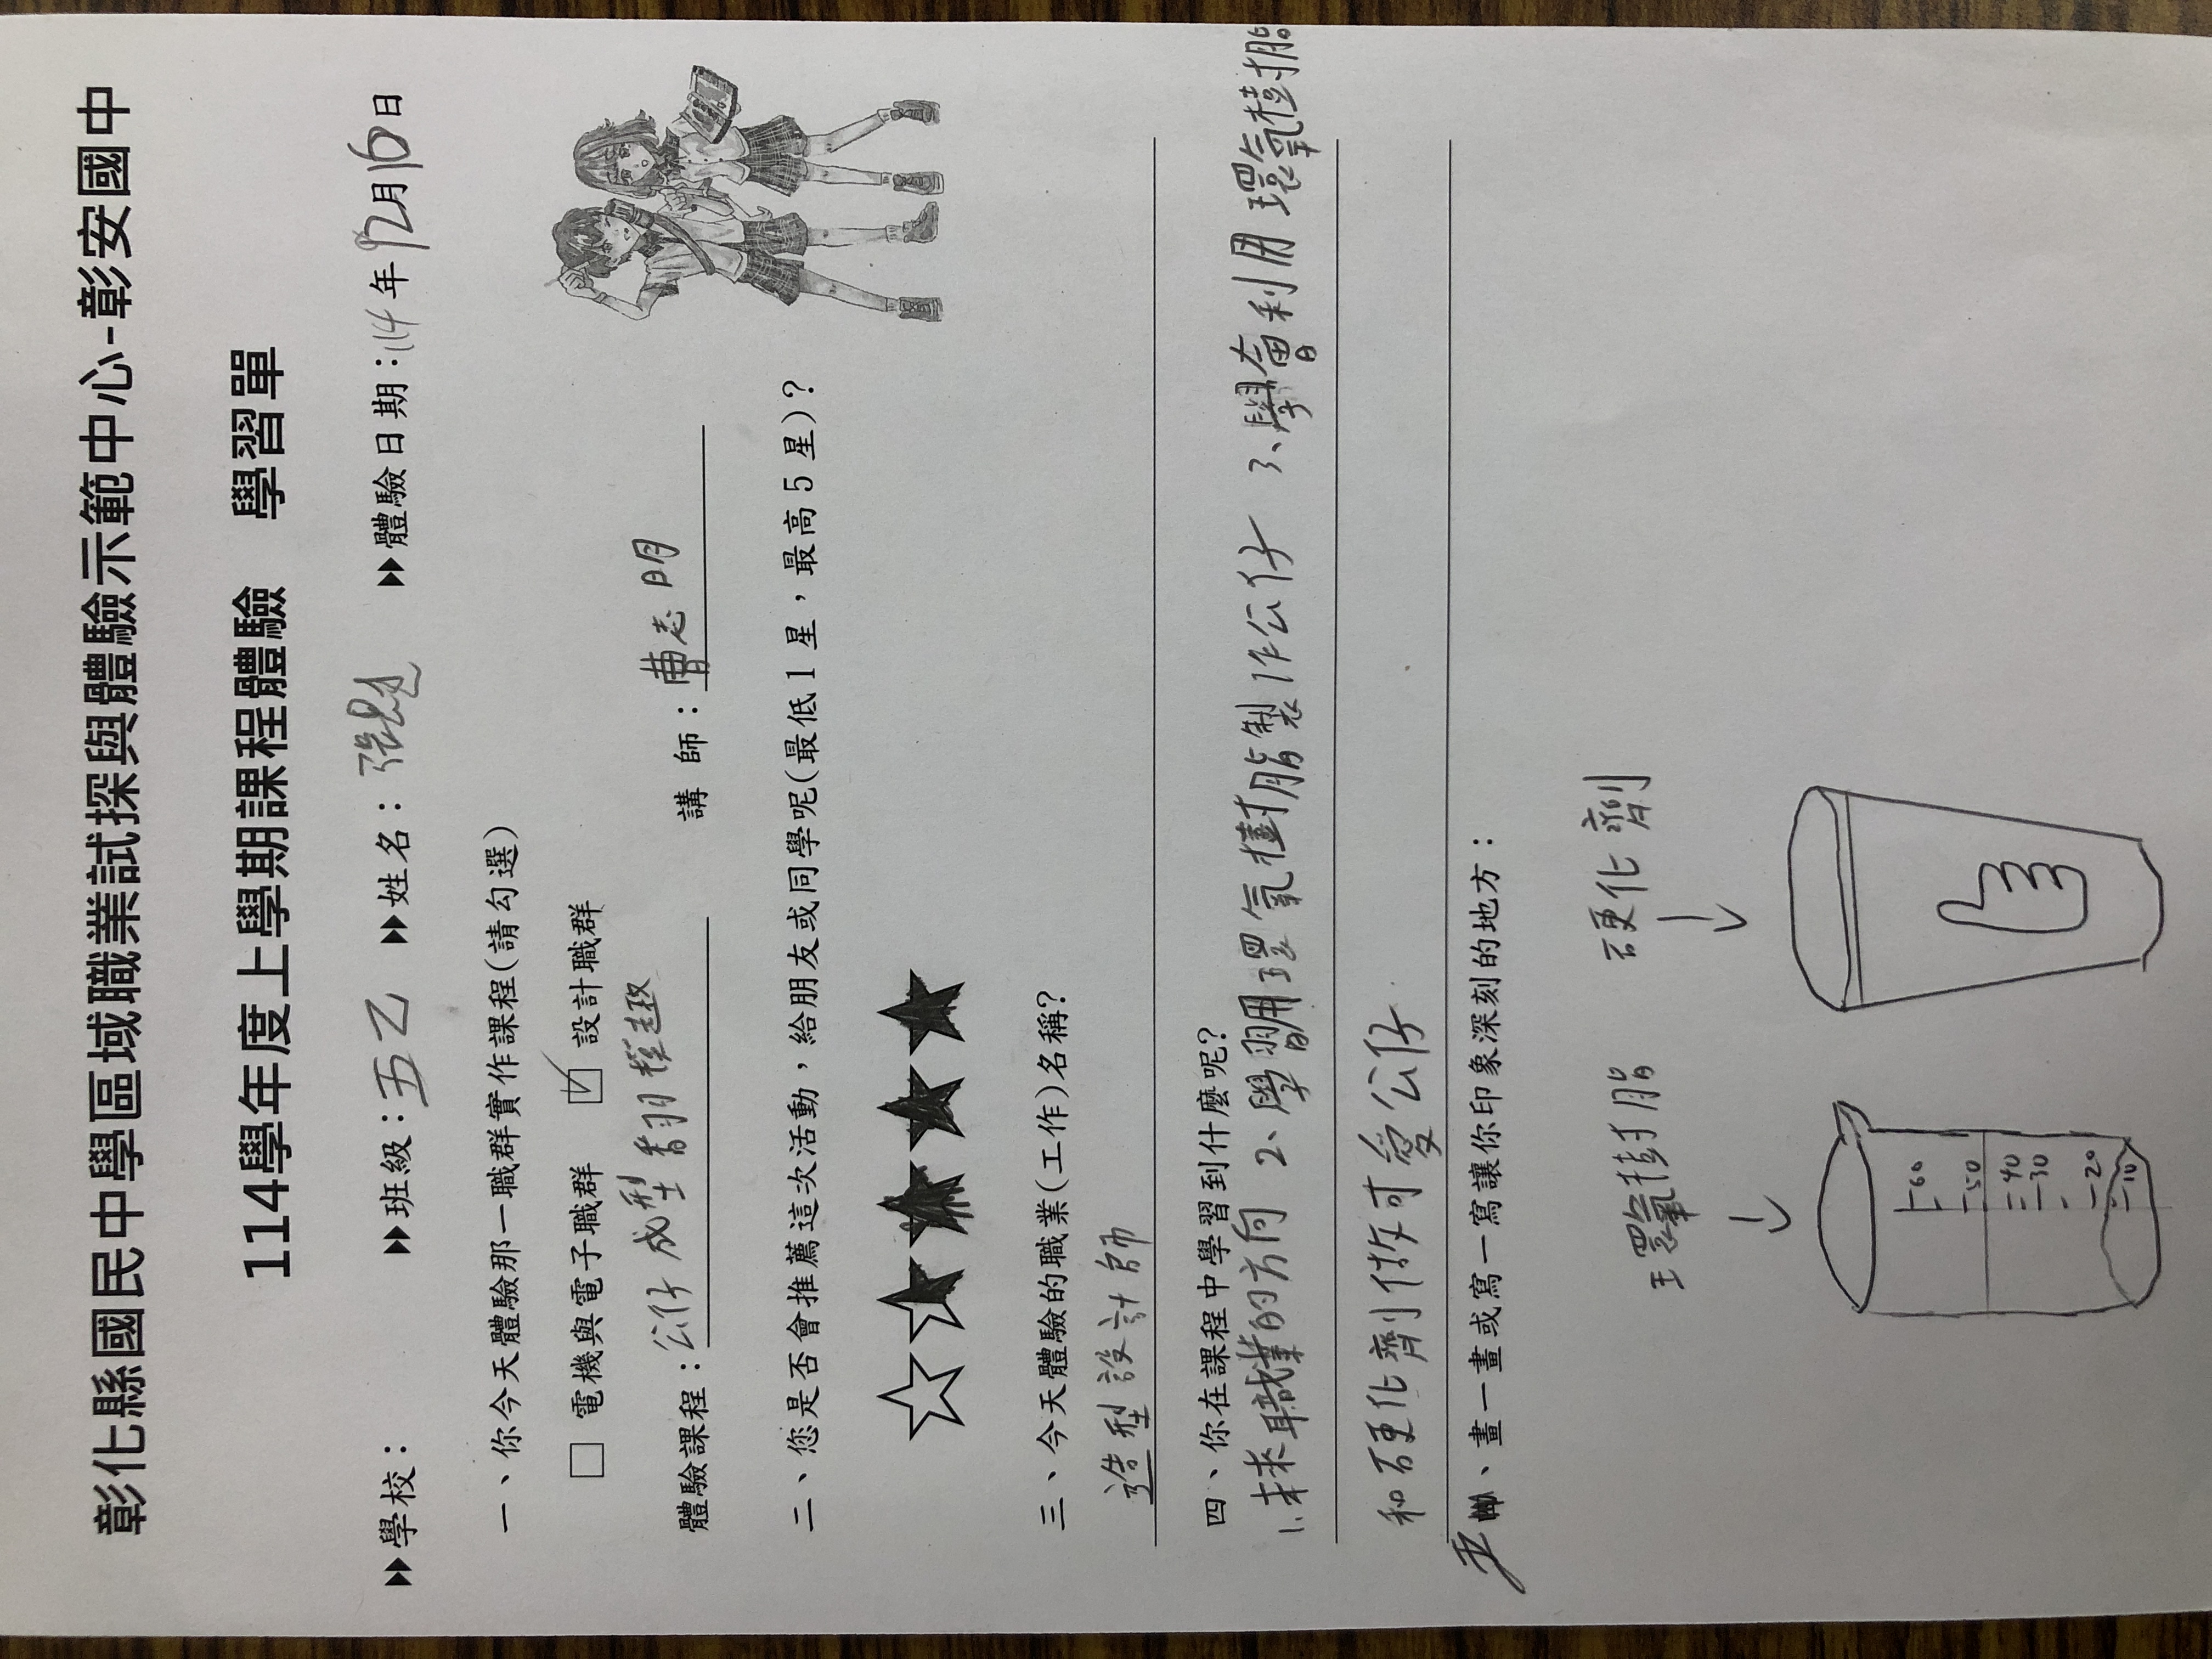 彰化縣國民中學區域職業試探與體驗示範中心-彰安國中
114學年度上學期課程體驗 學習單
▶▶學校： ▶▶班級：五乙 ▶▶姓名：張 ▶▶體驗日期：114年12月16日
一、你今天體驗那一職群群實作課程(請勾選)
□ 電機與電子職群 ☑ 設計職群
體驗課程：公仔成型翻模趣 講 師：曹志明
二、您是否會推薦這次活動，給朋友或同學呢(最低1星，最高5星)?
三、今天體驗的職業(工作)名稱?
造型設計師
四、你在課程中學習到什麼呢?
1.未來職業的方向 2、學習用環氧樹脂製作公仔 3、學會利用環氧樹脂
和硬化劑做可愛公仔
五、畫一畫或寫一寫讓你印象深刻的地方：
環氧樹脂 硬化劑
60
50
40
30
20
10